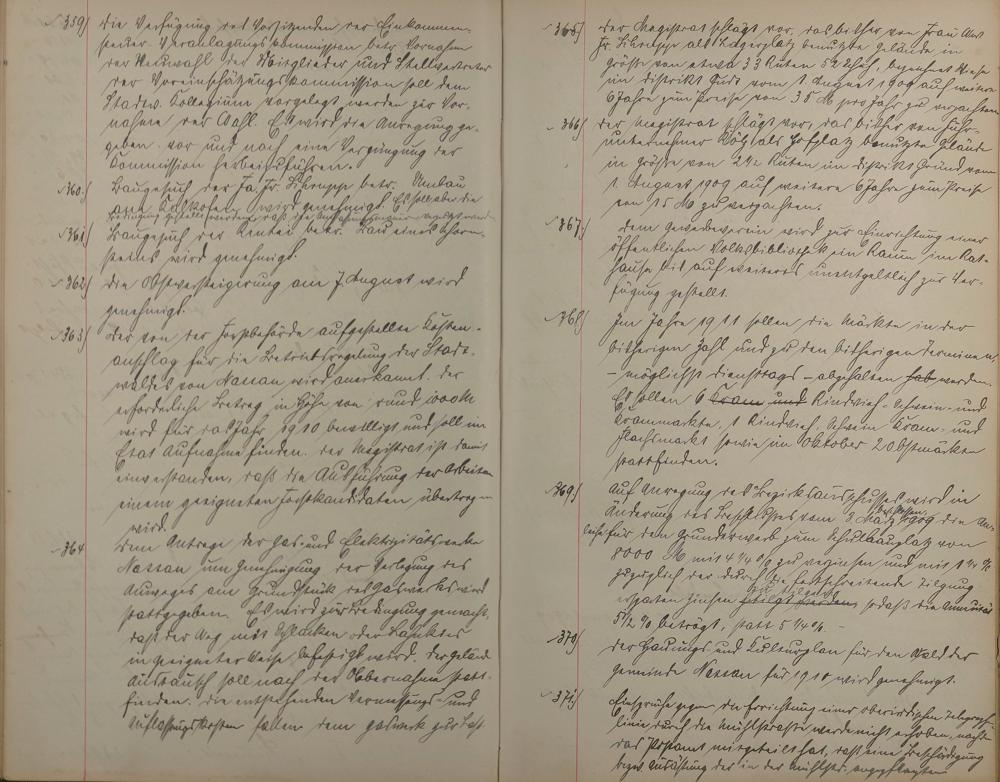 359) Die Verfügung des Vorsitzenden der Einkommen-
steuer-Veranlagungskommission betr. Vornahme
der Neuwahl der Mitglieder und Stellvertreter
der Voreinschätzungskommission soll dem
Stadtv. Kollegium vorgelegt werden zur Vor-
nahme der Wahl. Es wird die Anregung ge-
geben, vor und nach eine Verjüngung der
Commission herbeizuführen.
360) Baugesuch der Fa. Fr. Schrupp betr. Umbau
am Kalkofen wird genehmigt. Es soll aber die
Bedingung gestellt werden, daß die
361) Baugesuch des betr. Bau eines Schorn-
steins wird genehmigt.
362) Die Obstversteigerung am 7 August wird
genehmigt.
363) Der von der Forstbehörde aufgestellte Kosten-
anschlag für die Betriebsregelung der Stadt-
waldes von Nassau wird anerkannt. Der
erforderliche Betrag in Höhe von rund 1000 M
wird für das Jahr 1910 bewilligt und soll im
Etat Aufnahme finden. Der Magistrat ist damit
einverstanden, daß die Ausführung der Arbeiten
einem geeigneten Forstkandidaten übertragen
wird.
364 Dem Antrage der Gas- und Elektrizitätswerke
Nassau um Genehmigung der Verlegung des
Auweges am Grundstück des Gaswerks wird
stattgegeben. Es wird zur Bedingung gemacht,
daß der Weg mit Schlacken oder Baukies
in geeigneter Weise befestigt wird. Der Gelände
Austausch soll nach der Übernahme statt-
finden. Die entstehenden Vermessungs- und
Auflassungskosten fallen dem Gaswerk zur Last
365) Der Magistrat schlägt vor, das bisher von Frau Wwe
Fr. Schrupp als Lagerplatz benutzte Gelände in
Größe von etwa 33 Ruten 52 Schuh, bezeichnet Wiese
im Distrikt vom 1 August 1909 auf weitere
6 Jahre zum Preise von 35 M pro Jahr zu verpachten
366) Der Magistrat schlägt vor, das bisher von Fuhr-
unternehmer als Hofplatz benutzte Gelände
in Größe von 24½ Ruten im Distrikt Grund vom
1 August 1909 auf weitere 6 Jahre zum Preise
von 15 M zu verpachten.
367) Dem Gewerbeverein wird zur Einrichtung einer
öffentlichen Volksbibliothek ein Raum im Rat-
hause bis auf weiteres unentgeltlich zur Ver-
fügung gestellt.
368) Im Jahre 1911 sollen die Märkte in der
bisherigen Zahl und zu den bisherigen Terminen,
- möglichst Dienstags - abgehalten werden.
Es sollen 6 Kram und Rindvieh-, Schwein- und
Krammarkte, 1 Rindvieh, Schwein Kram- und
Flachsmarkt sowie im Oktober 2 Obstmärkte
stattfinden.
369) Auf Anregung des Bezirksausschusses wird in
Änderung des Beschlusses vom 3 März 1909 beschlossen, die An-
leihe für den Grunderwerb zum Schulbauplatz von
8000 M mit 4 ¼ % zu verzinsen und mit 1 ¼ %
zuzüglich der durch die fortschreitende Tilgung
ersparten Zinsen zu tilgen, sodaß die Annuität
5½ % beträgt, statt 5 ¼ %. -
370) Der Hauungs- und Kulturplan für den Wald der
Gemeinde Nassau für 1910 wird genehmigt.
371) Einsprüche gegen die Errichtung einer oberirdischen Telegraph-
linie durch die Mühlstrasse werden nicht erhoben, nachdem
das Postamt mitgeteilt hat, daß eine Beschädigung
bezw. Ausästung der in der Mühlstr. angepflanzten